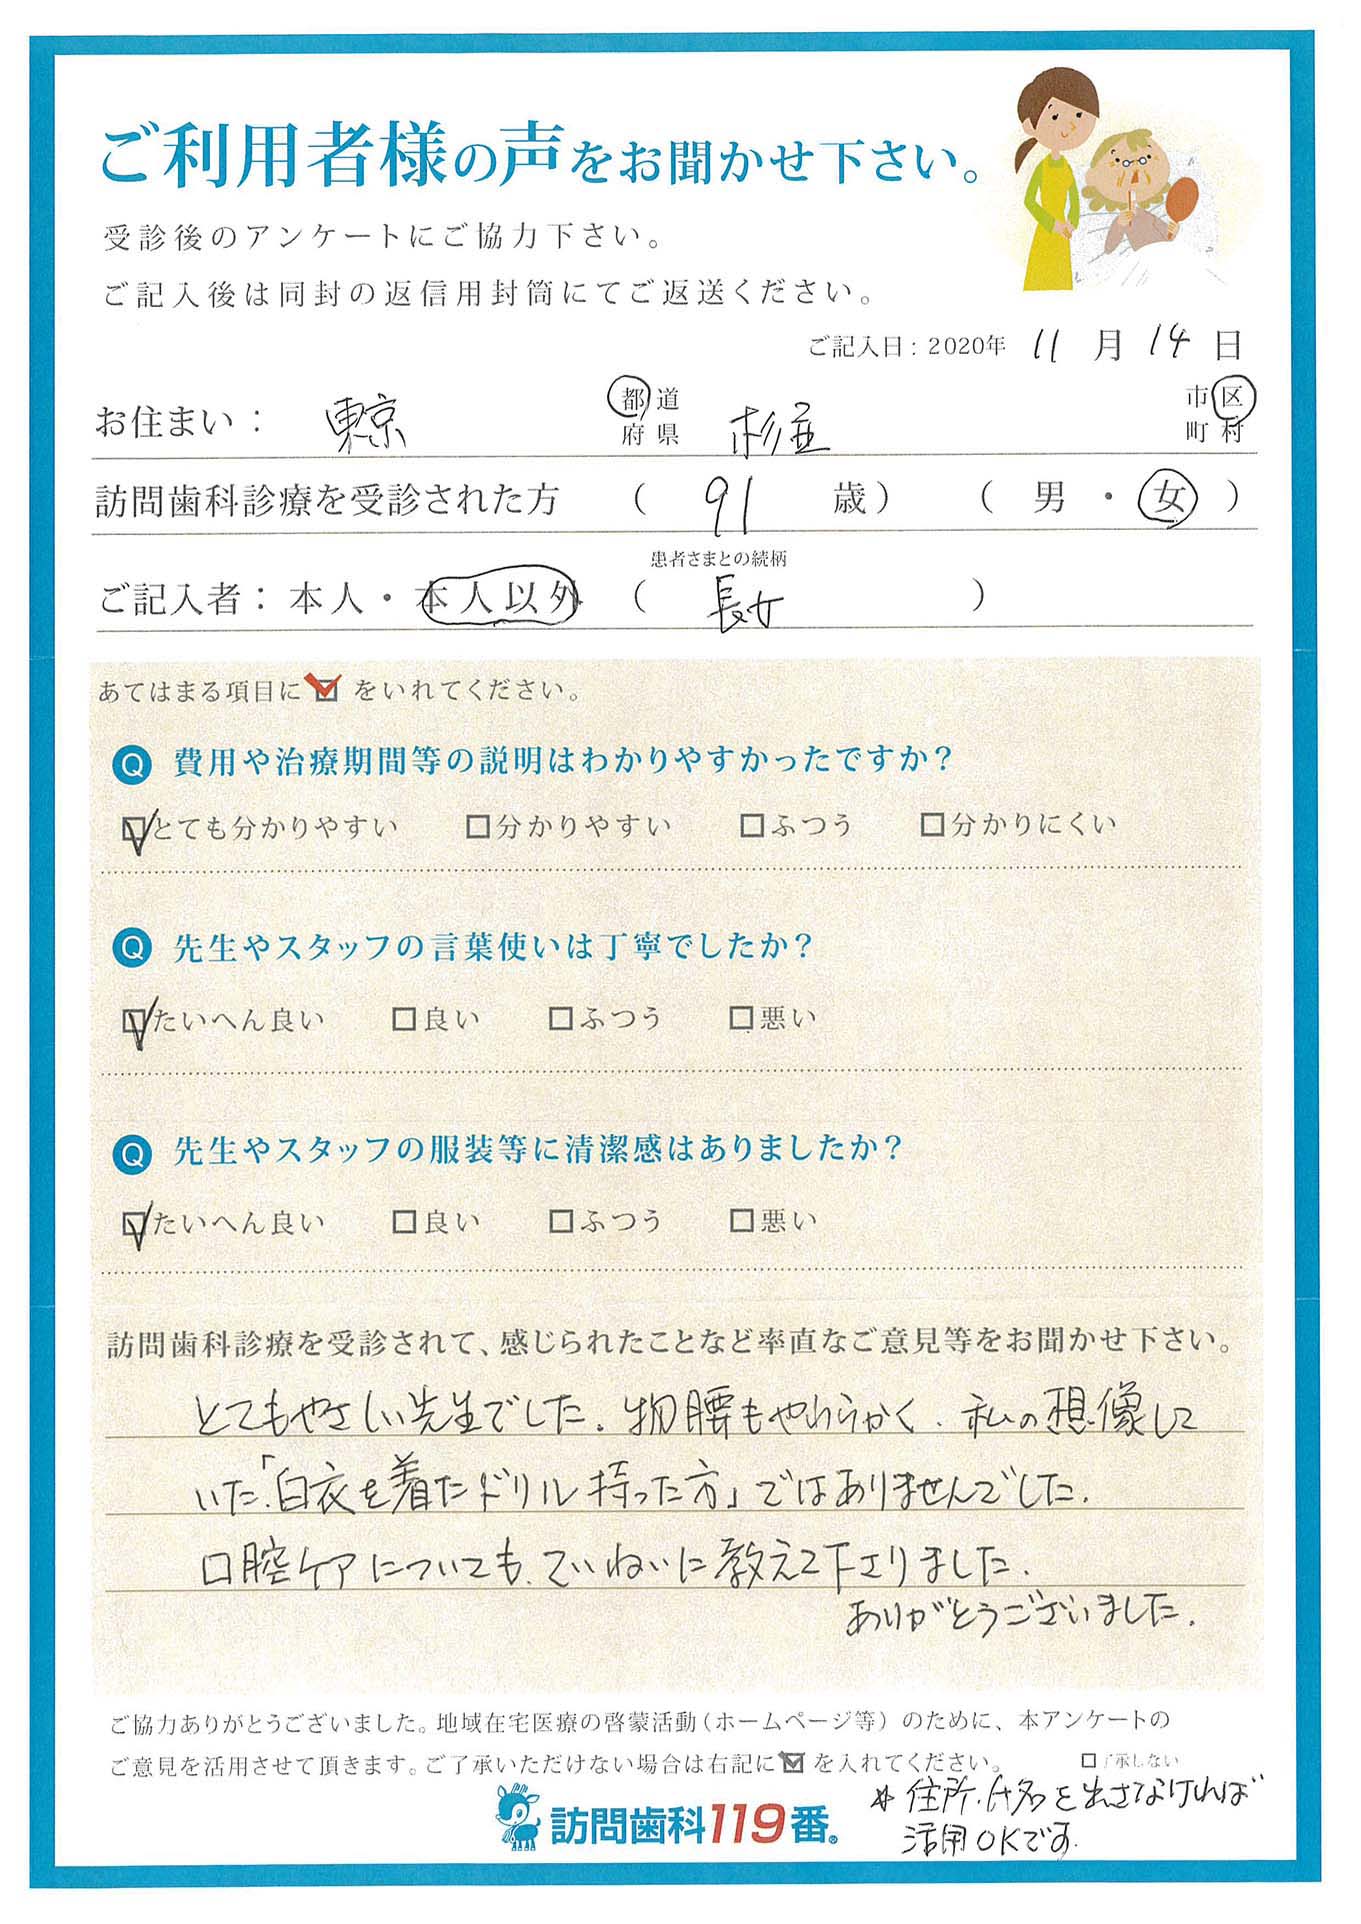 ご利用者様の声をお聞かせ下さい。
受診後のアンケートにご協力下さい。
ご記入後は同封の返信用封筒にてご返送ください。
ご記入日：2020年 11 月 14 日
お住まい： 東京 都道府県 杉並 市区町村
訪問歯科診療を受診された方 （ 91 歳） （ 男 ・ 女 ）
患者さまとの続柄
ご記入者：本人・本人以外 （ 長女 ）
あてはまる項目に☑をいれてください。
Q 費用や治療期間等の説明はわかりやすかったですか？
☑とても分かりやすい □分かりやすい □ふつう □分かりにくい
Q 先生やスタッフの言葉使いは丁寧でしたか？
☑たいへん良い □良い □ふつう □悪い
Q 先生やスタッフの服装等に清潔感はありましたか？
☑たいへん良い □良い □ふつう □悪い
訪問歯科診療を受診されて、感じられたことなど率直なご意見等をお聞かせ下さい。
とてもやさしい先生でした。物腰もやわらかく、私の想像して
いた、「白衣を着たドリル持った方」ではありませんでした。
口腔ケアについても、ていねいに教えて下さりました。
ありがとうございました。
ご協力ありがとうございました。地域在宅医療の啓蒙活動（ホームページ等）のために、本アンケートの
ご意見を活用させて頂きます。ご了承いただけない場合は右記に☑を入れてください。 □了承しない
＊住所、氏名を出さなければ
活用OKです
訪問歯科119番®